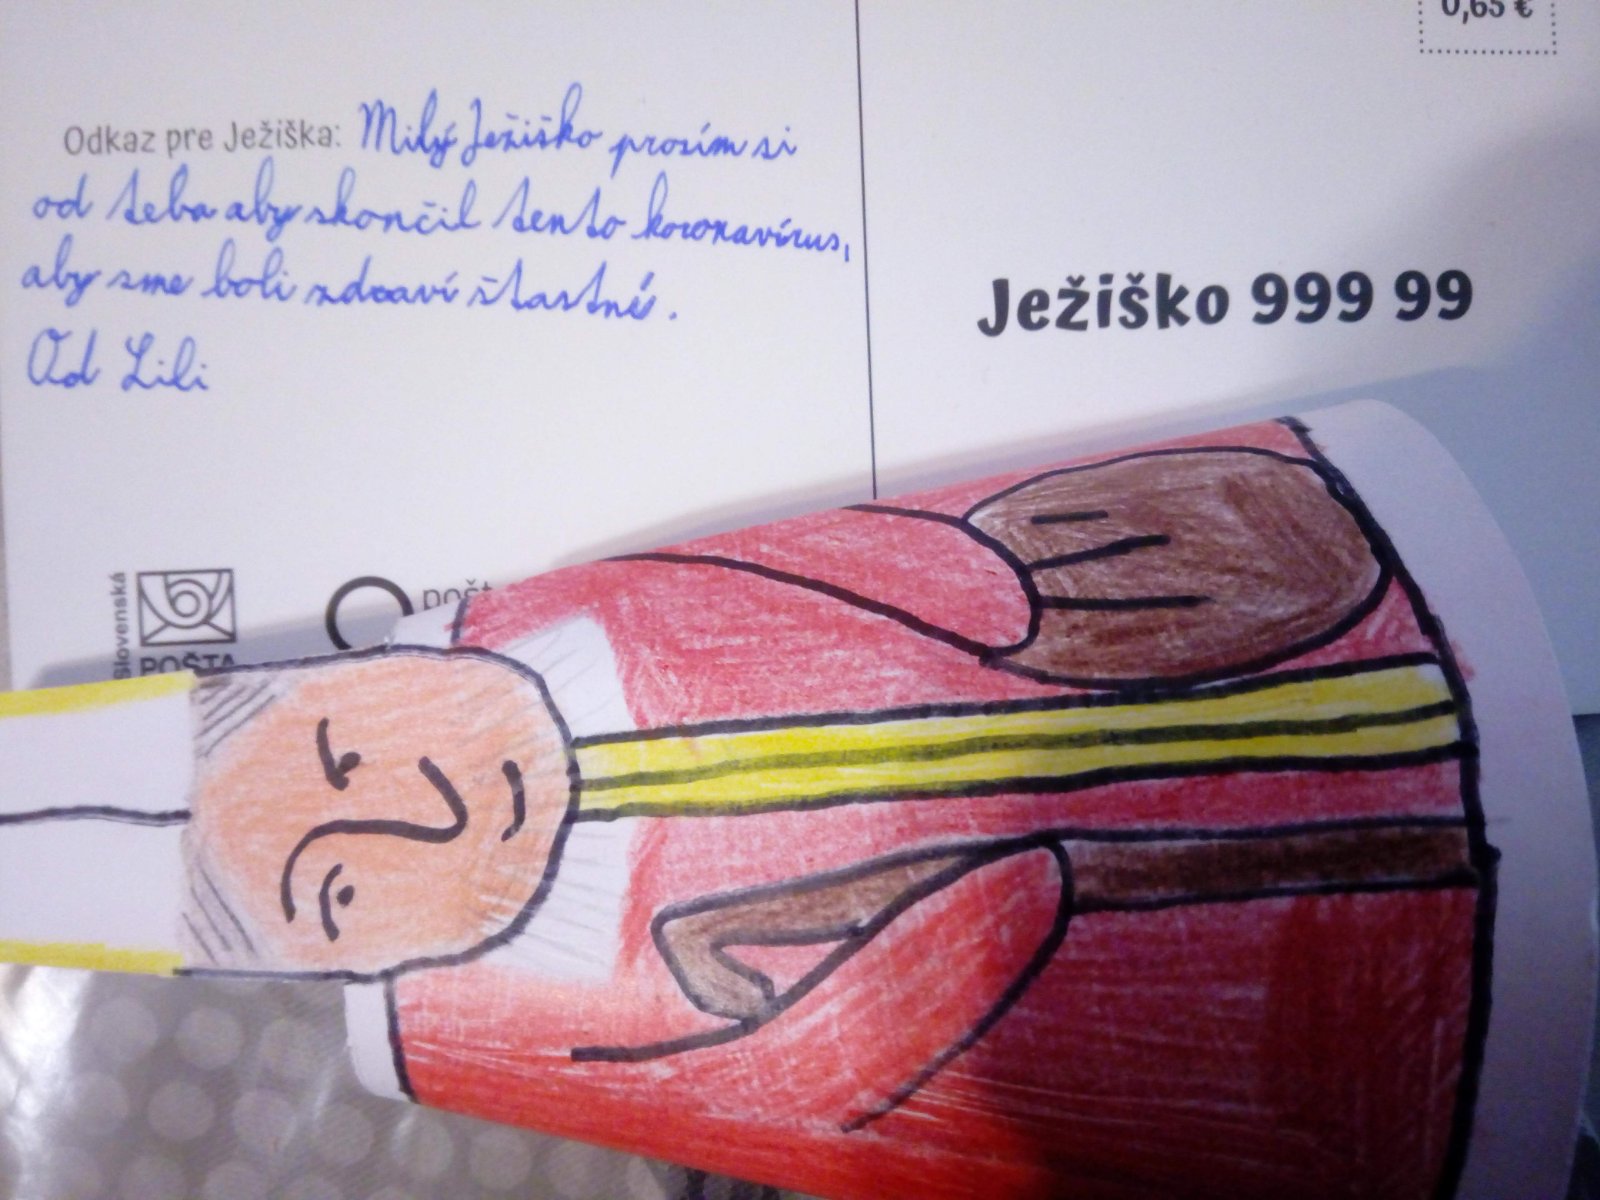 0,65 €
Odkaz pre Ježiška: Milý Ježiško prosím si
od teba aby skončil tento koronavírus,
aby sme boli zdraví štastní.
Od Lili
Ježiško 999 99
Slovenská
POŠTA